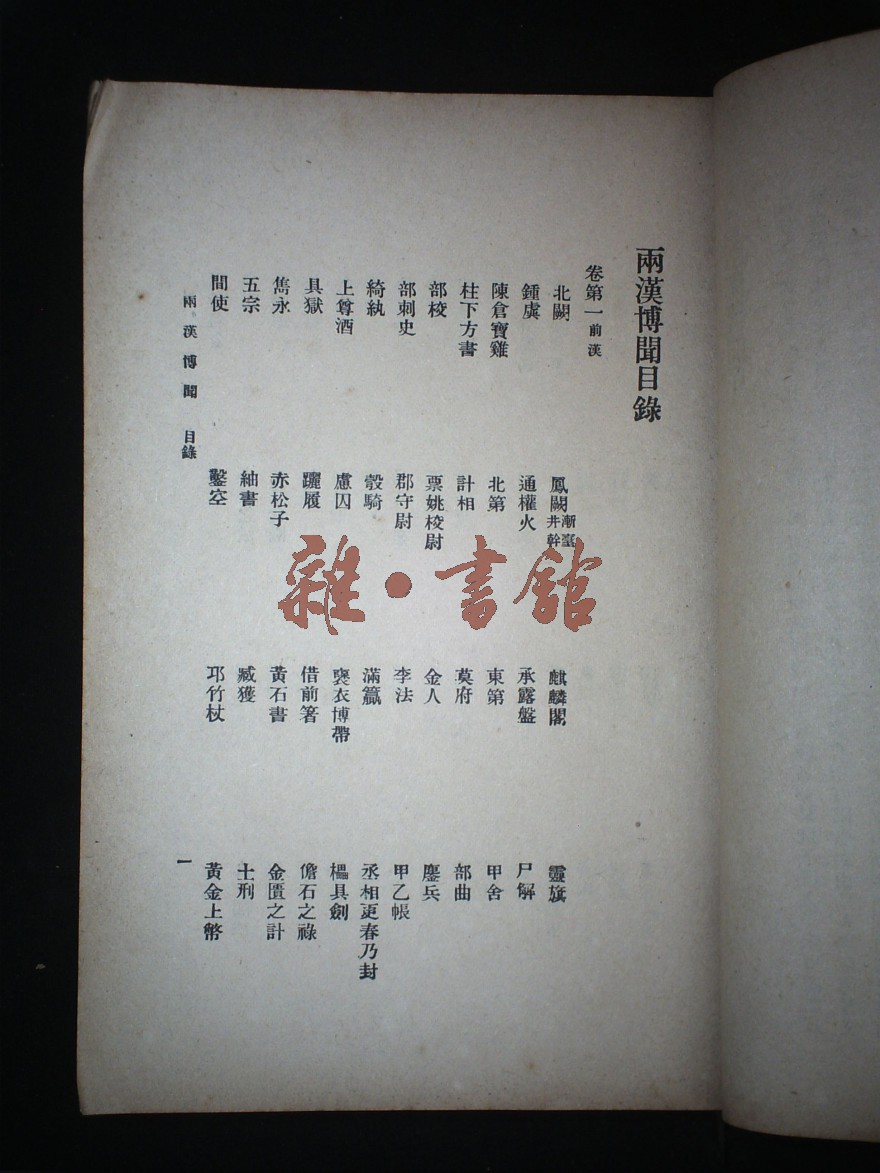 兩漢博聞目錄
卷第一前漢
北闕 鳳闕漸臺井幹 麒麟閣 靈旗
鍾虡 通權火 承露盤 尸解
陳倉寶雞 北第 東第 甲舍
柱下方書 計相 莫府 部曲
部校 票姚校尉 金人 鏖兵
部刺史 郡守尉 李法 甲乙帳
綺紈 彀騎 滿籯 丞相更春乃封
上尊酒 慮囚 襃衣博帶 櫑具劍
具獄 躧履 借前箸 儋石之祿
雋永 赤松子 黃石書 金匱之計
五宗 紬書 臧獲 士刑
間使 鑿空 邛竹杖 黃金上幣
兩漢博聞 目錄 一
雜·書館